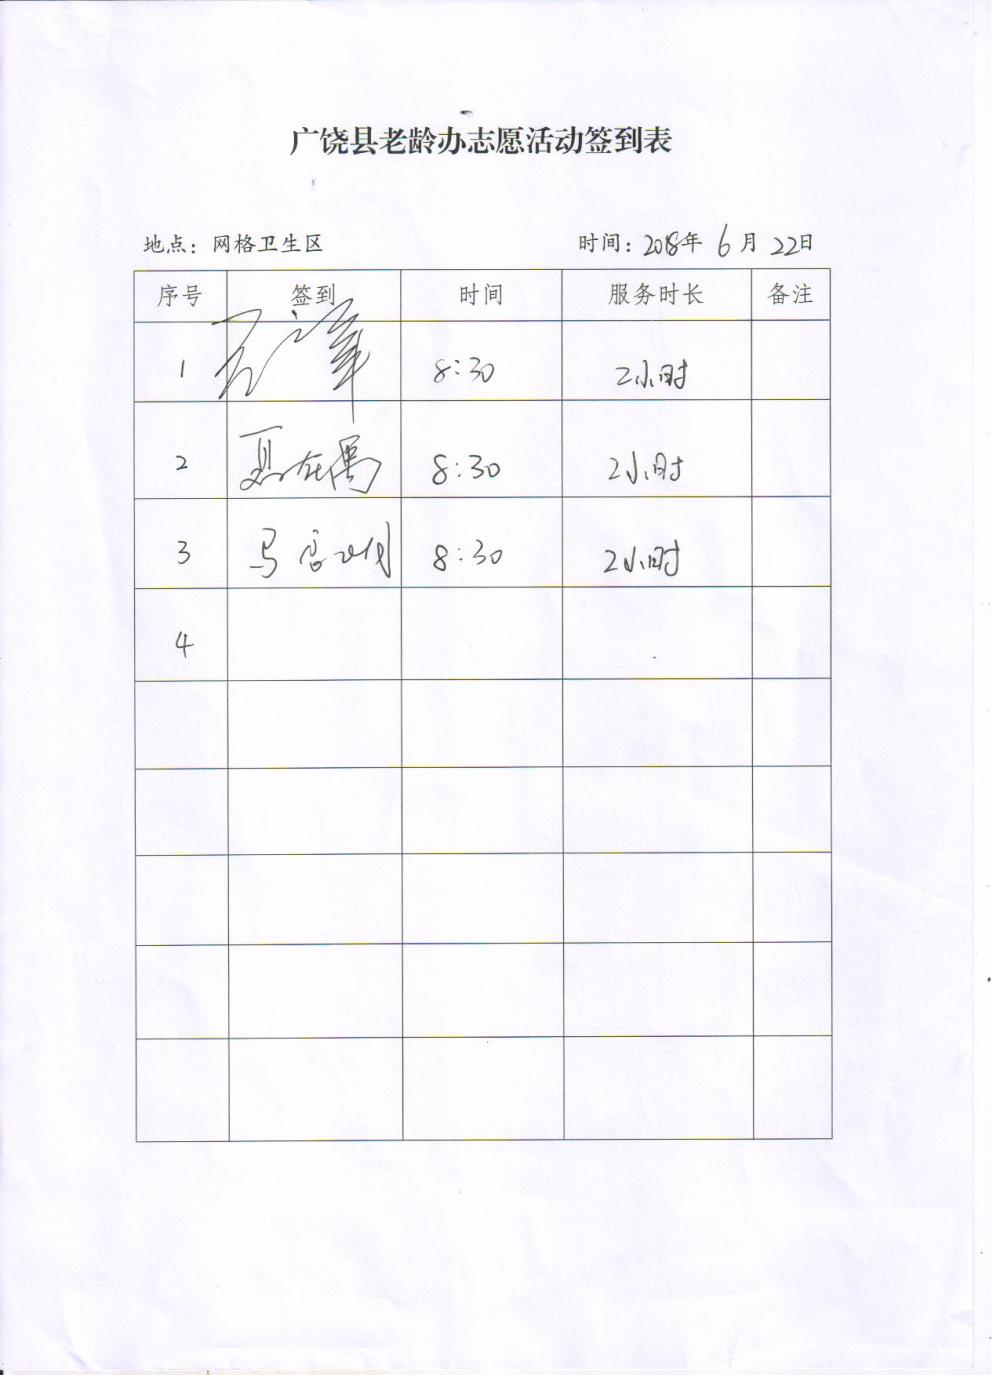 广饶县老龄办志愿活动签到表
地点：网格卫生区 时间：2018年 6月 22日
序号 签到 时间 服务时长 备注
1 8:30 2小时
2 8:30 2小时
3 马 8:30 2小时
4